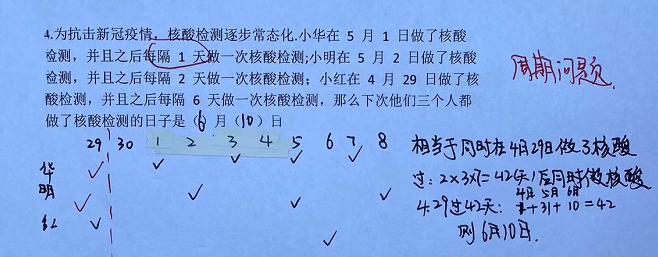 4.为抗击新冠疫情，核酸检测逐步常态化.小华在 5 月 1 日做了核酸
检测，并且之后每隔 1 天做一次核酸检测;小明在 5 月 2 日做了核酸
检测，并且之后每隔 2 天做一次核酸检测； 小红在 4 月 29 日做了核
酸检测，并且之后每隔 6 天做一次核酸检测，那么下次他们三个人都
做了核酸检测的日子是（6）月（10）日
周期问题
29 30 1 2 3 4 5 6 7 8
华
明
红
相当于同时在4月29日做了核酸
过：2×3×7=42(天)后同时做核酸
4月 5月 6月
4.29过42天： 1+31+10=42
则6月10日.